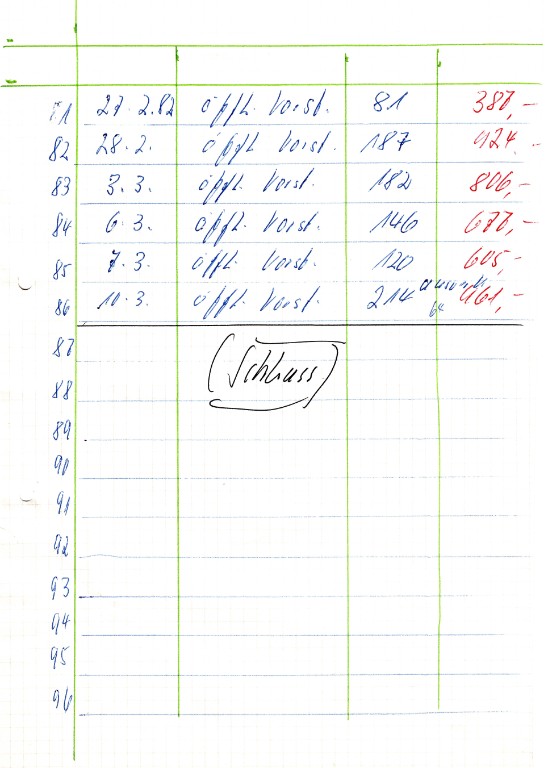 81 27.2.82 öffl. Vorst. 81 387,-
82 28.2. öffl. Vorst. 187 924.-
83 3.3. öffl. Vorst. 182 806,-
84 6.3. öffl. Vorst. 146 677,-
85 7.3. öffl. Vorst. 120 605,-
86 10.3. öffl. Vorst. 214 961,-
87
(Schluss)
88
89
90
91
92
93
94
95
96